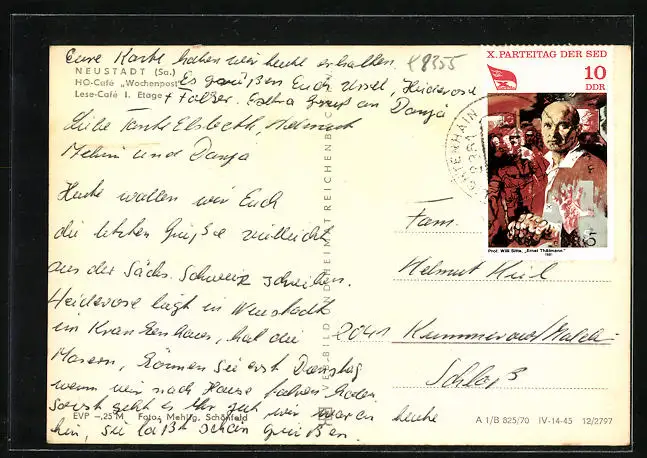 Eure Karte haben wir heute erhalten.
K8355
NEUSTADT (Sa.)
HO-Café „Wochenpost"
Lese-Café I. Etage
Es grüßen Euch Ursel, Heiderose
+ Falker. Extra Gruß an Danja
Liebe Tante Elsbeth, Helmut
und Danja
Heute wollen wir Euch
die letzten Grüße vielleicht
aus der Sächs. Schweiz schreiben.
Heiderose liegt in Neustadt
im Krankenhaus, hat die
Masern, können sie erst Dienstag
wenn wir nach Hause fahren holen
sonst geht es ihr gut wir waren heute
hin, sie läßt schön grüßen.
EVP –,25 M Foto: Mehlig, Schönfeld
VEB BILD UND HEIMAT REICHENBACH
X. PARTEITAG DER SED
10
DDR
Prof. Willi Sitte, „Ernst Thälmann"
1981
8361
Fam.
Helmut Kiel
2041 Kummerow/Malch.
Schloß
A 1/B 825/70 IV-14-45 12/2797